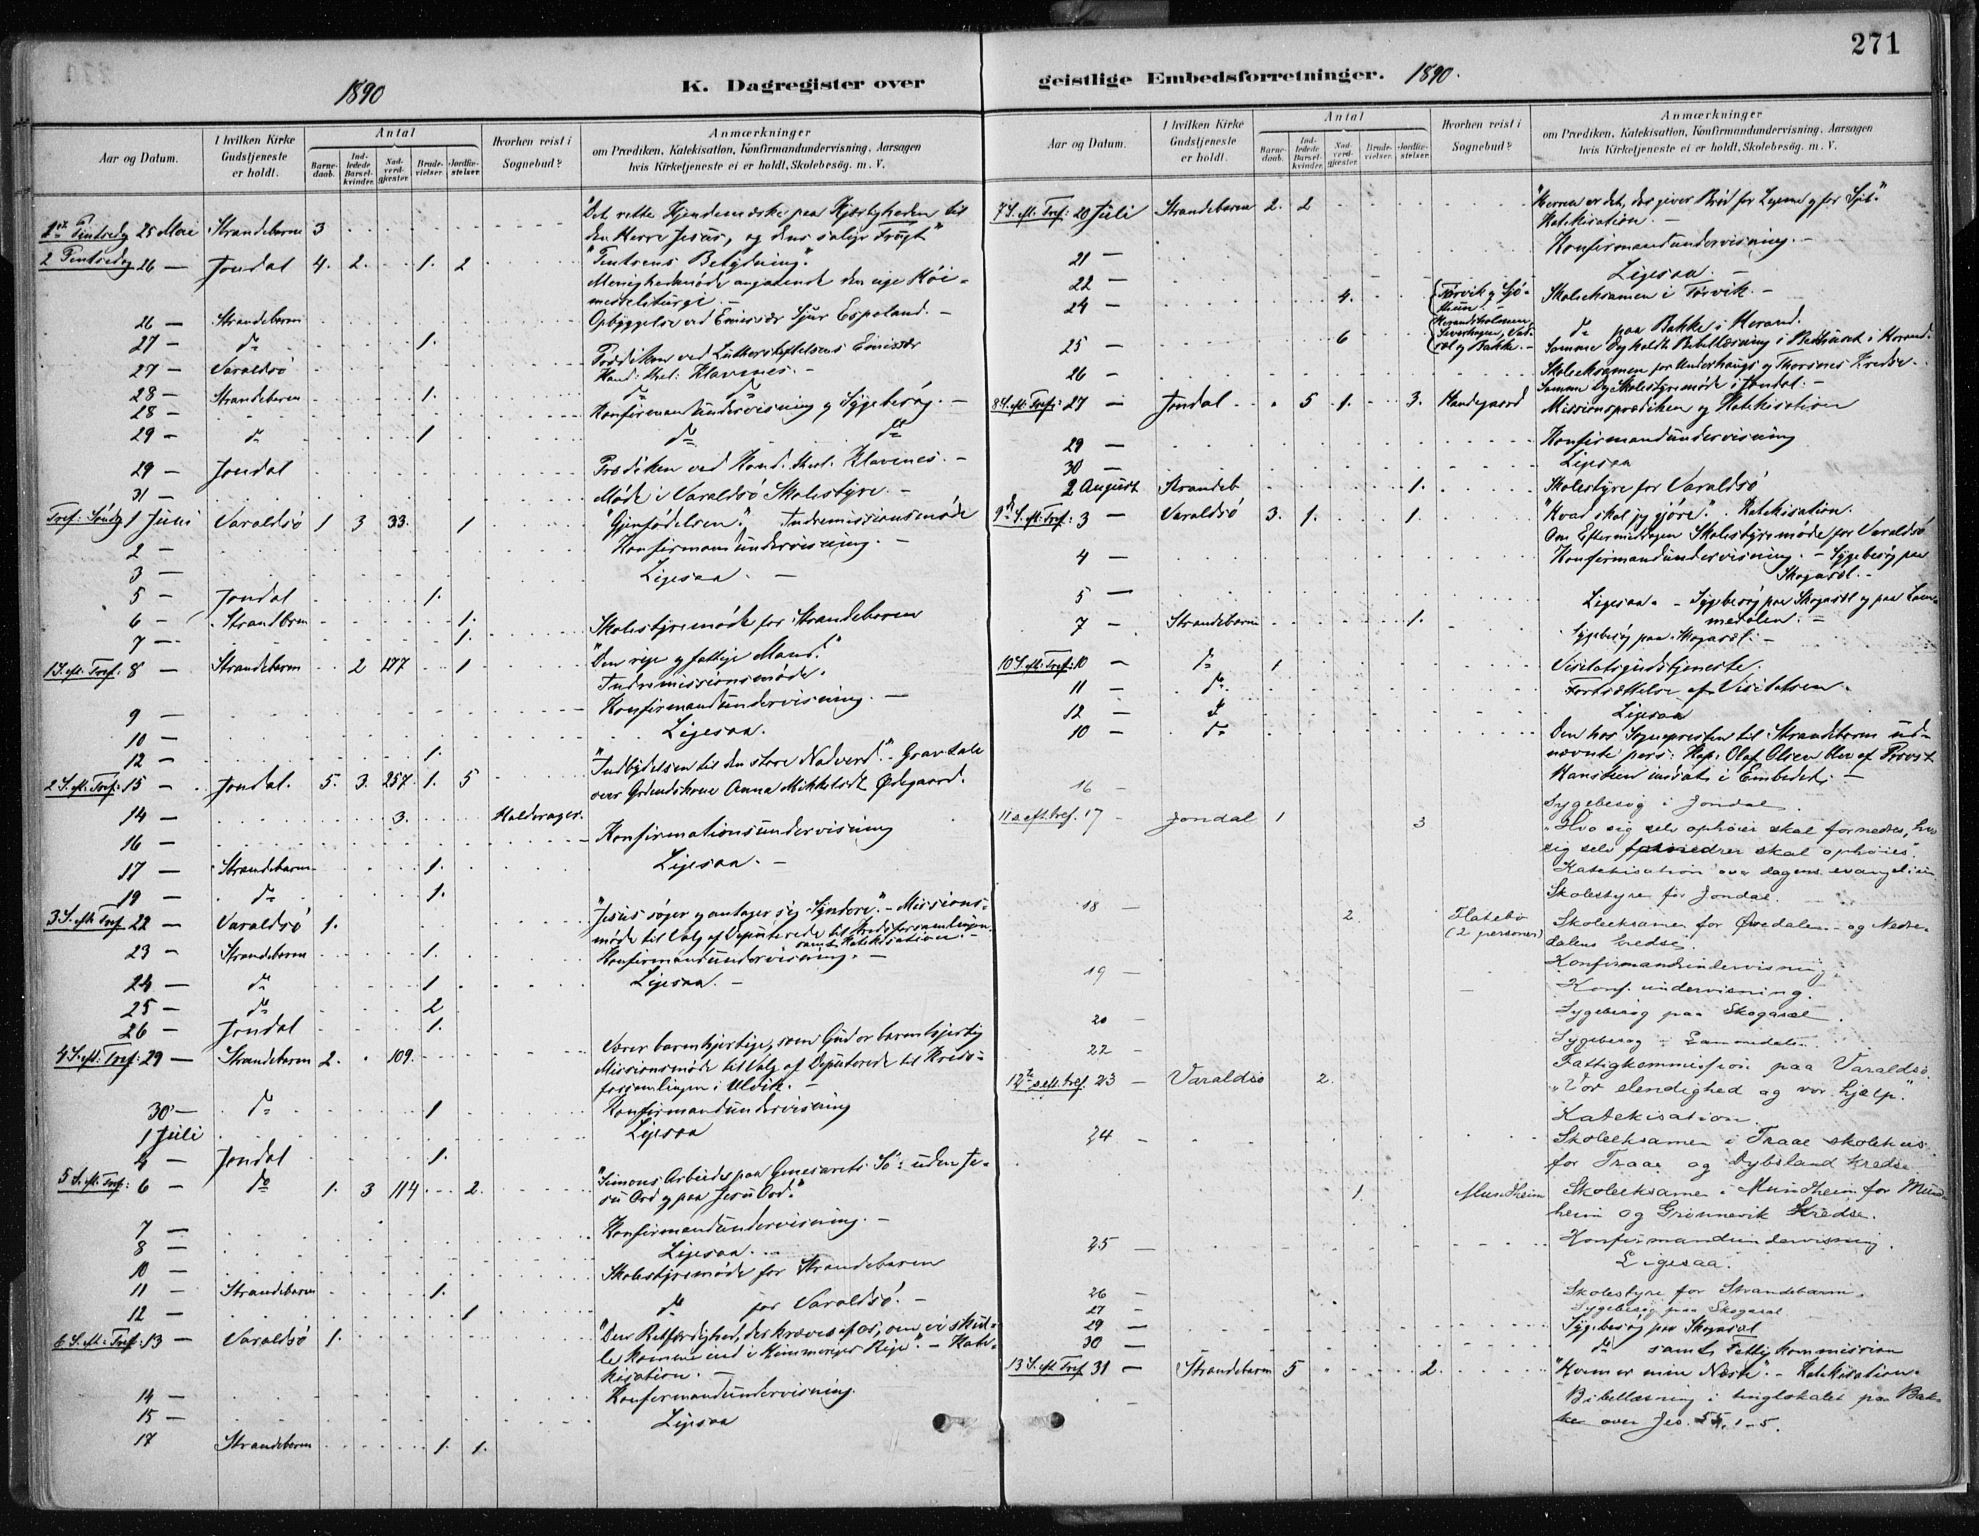 271
1890
K. Dagregister over
geistlige Embedsforretninger. 1890.
Aar og Datum.
I hvilken Kirke Gudstjeneste er holdt.
Antal
Barnedaab.
Indledede Barselkvinder.
Nadverdgjæster.
Brudevielser.
Jordfæstelser.
Hvorhen reist i Sognebud?
Anmærkninger
om Prædiken, Katekisation, Konfirmandundervisning, Aarsagen
hvis Kirketjeneste ei er holdt, Skolebesøg. m. V.
"Det rette Kjendemærke paa Kjærligheden til
1ste Pintsedag 25 Mai Strandebarm 3 den Herre Jesus, og dens salige Frugt"
2 Pintsedag 26 — Jondal 4. 2. 1. 2 "Pintsens Betydning".
Menighedsmøde angaaende den nye Høi-
messeliturgi. —
26 — Strandebarm Opbyggelse ved Emissær Sjur Espeland. —
27 — do 1.
27 — Varaldsø Prædiken ved Lutherstiftelsens Emissær
Kand. theol. Klavenes. —
28 — Strandebarm 1. do do
28 — Konfirmandundervisning og Sygebesøg. —
29 — do 1 do do
29 — Jondal Prædiken ved Kand. theol. Klavenes. —
31 — Møde i Varaldsø Skolestyre. —
Tref: Søndg 1 Juni Varaldsø 1 3 33. 1 "Gjenfødelsen". Indremissionsmøde
2 — Konfirmandundervisning. —
3 — Ligesaa. —
5 — Jondal 1.
6 — Strandebrm 1. Skolestyremøde for Strandebarm
7 — 1.
1 S. eft: Tref: 8 — Strandebarm 2 177 1 "Den rige og fattige Mand".
Indremissionsmøde.
9 — Konfirmandundervisning. —
10 — Ligesaa.
12 — 1.
"Indbydelsen til den store Nadverd". Gravtale
2 S. eft: Tref: 15 — Jondal. 5. 3. 257. 1. 5 over Gaardskone Anna Mikkelsdt Ødegaard.
14 — 3. Haldorager.
16 — Konfirmationsundervisning
17 — Strandebarm 1. Ligesaa. —
19 — do 1.
3 S. eft: Tref 22 — Varaldsø 1. "Jesus søger og antager sig Syndere". — Missions-
møde til Valg af Deputerede til Kredsforsamlingen
samt Katekisation. —
23 — Strandebarm 1. Konfirmandundervisning. —
24 — do 1 Ligesaa. —
25 — do 2
26 — Jondal 1.
4 S. eft: Tref: 29 — Strandebarm 2. 109. Værer barmhjertige, som Gud er barmhjertig
Missionsmøde til Valg af Deputerede til Kreds-
forsamlingen i Ulvik. —
30 — do 1. Konfirmandundervisning
1 Juli Ligesaa
4 — Jondal 1.
5 S. eft: Tref: 6 — do 1. 3 114 2. "Simons Arbeide paa Genesarets Sø: uden Je-
su Ord og paa Jesu Ord."
7 — Konfirmandundervisning. —
8 — Ligesaa.
10 — Skolestyremøde for Strandebarm
11 — Strandebarm 1.
12 — 1 do for Varaldsø. —
6 S. eft: Tref: 13 — Varaldsø 1. "Den Retfærdighed, der kræves af os, om vi skul-
le komme ind i Himmeriges Rige". — Kate-
kisation. —
14 — Konfirmandundervisning.
15 — Ligesaa
17 Strandebarm 1. 1.
Aar og Datum.
I hvilken Kirke Gudstjeneste er holdt.
Antal
Barnedaab.
Indledede Barselkvinder.
Nadverdgjæster.
Brudevielser.
Jordfæstelser.
Hvorhen reist i Sognebud?
Anmærkninger
om Prædiken, Katekisation, Konfirmandundervisning, Aarsagen
hvis Kirketjeneste ei er holdt, Skolebesøg. m. V.
7 S. eft: Tref: 20 Juli Strandebarm 2. 2 "Herren er det, der giver Brød for Legeme og for Sjæl."
Katekisation. —
21 — Konfirmandundervisning. —
22 — Ligesaa. —
24 — 4. Skoleeksamen i Tørvik. —
25 — 6 og Bakke. — do paa Bakke i Herand.
Samme Dag holdt Bibellæsning i Bedehuset i Herand.
26 — Skoleeksamen for Underhaugs og Thorsnes Kredse.
Samme Dag Skolestyremøde i Jondal. —
8 S. eft: Tref: 27 — Jondal 5 1. 3. Handegaard Missionsprædiken og Katekisation
29 — Konfirmandundervisning
30 — Ligesaa
2 August Strandeb 1. Skolestyre for Varaldsø
9de S. eft: Tref: 3 — Varaldsø 3. 1. 1. "Hvad skal jeg gjøre". Katekisation.
Om Eftermiddagen Skolestyremøde for Varaldsø
4 — Konfirmandundervisning. — Sygebesøg paa
Skogasæl. —
5 — Ligesaa. — Sygebesøg paa Skogasæl og paa Lam-
medalen. —
7 — Strandebarm 1. Sygebesøg paa Skogasæl. —
10 S. eft: Tref: 10 — do 1 Visitatsgudstjeneste.
11 — do Fortsættelse af Visitatsen.
12 — do Ligesaa
10 — do Den her Sognepresten til Strandebarm ud-
nævnte pers: Kap: Olaf Olsen blev af Provst
Hansteen indsat i Embedet. —
16 — Sygebesøg i Jondal.
11 s eft. tref. 17 — Jondal 1 3 "Hvo sig selv ophøier skal fornedres, hvo
sig selv fornedrer skal ophøies".
Katekisation over dagens evangelium
Skolestyre for Jondal.
18 — 2. Flatebø
(2 personer) Skoleeksamen for Øvredalen — og Nedre-
dalens kredse.
19 — Konfirmandundervisning.
— Konf. undervisning.
20 — Sygebesøg paa Skogasæl.
22 — Sygebesøg i Lammedalen.
Fattigkommission paa Varaldsø.
12te s. eft. tref. 23 — Varaldsø 2. "Vor elendighed og vor hjælp".
Katekisation
24 — Skoleeksamen i Traae skolehus
for Traae og Dybsland kredse
1. Mundheim Skoleeksamen i Mundheim for Mund-
heim og Grønnevik Kredse.
25 — Konfirmandundervisning.
Ligesaa.
26 — Skolestyre for Strandebarm.
27 — Sygebesøg paa Skogasæl
29 — Sygebesøg paa Skogasæl
30 — do samt Fattigkommission
13 S. eft Tref 31 — Strandebarm 5 2. "Hvem er min Næste". — Katekisation.
Bibellæsning i tinglokalet paa Bak-
ke over Jes. 55, 1-5.